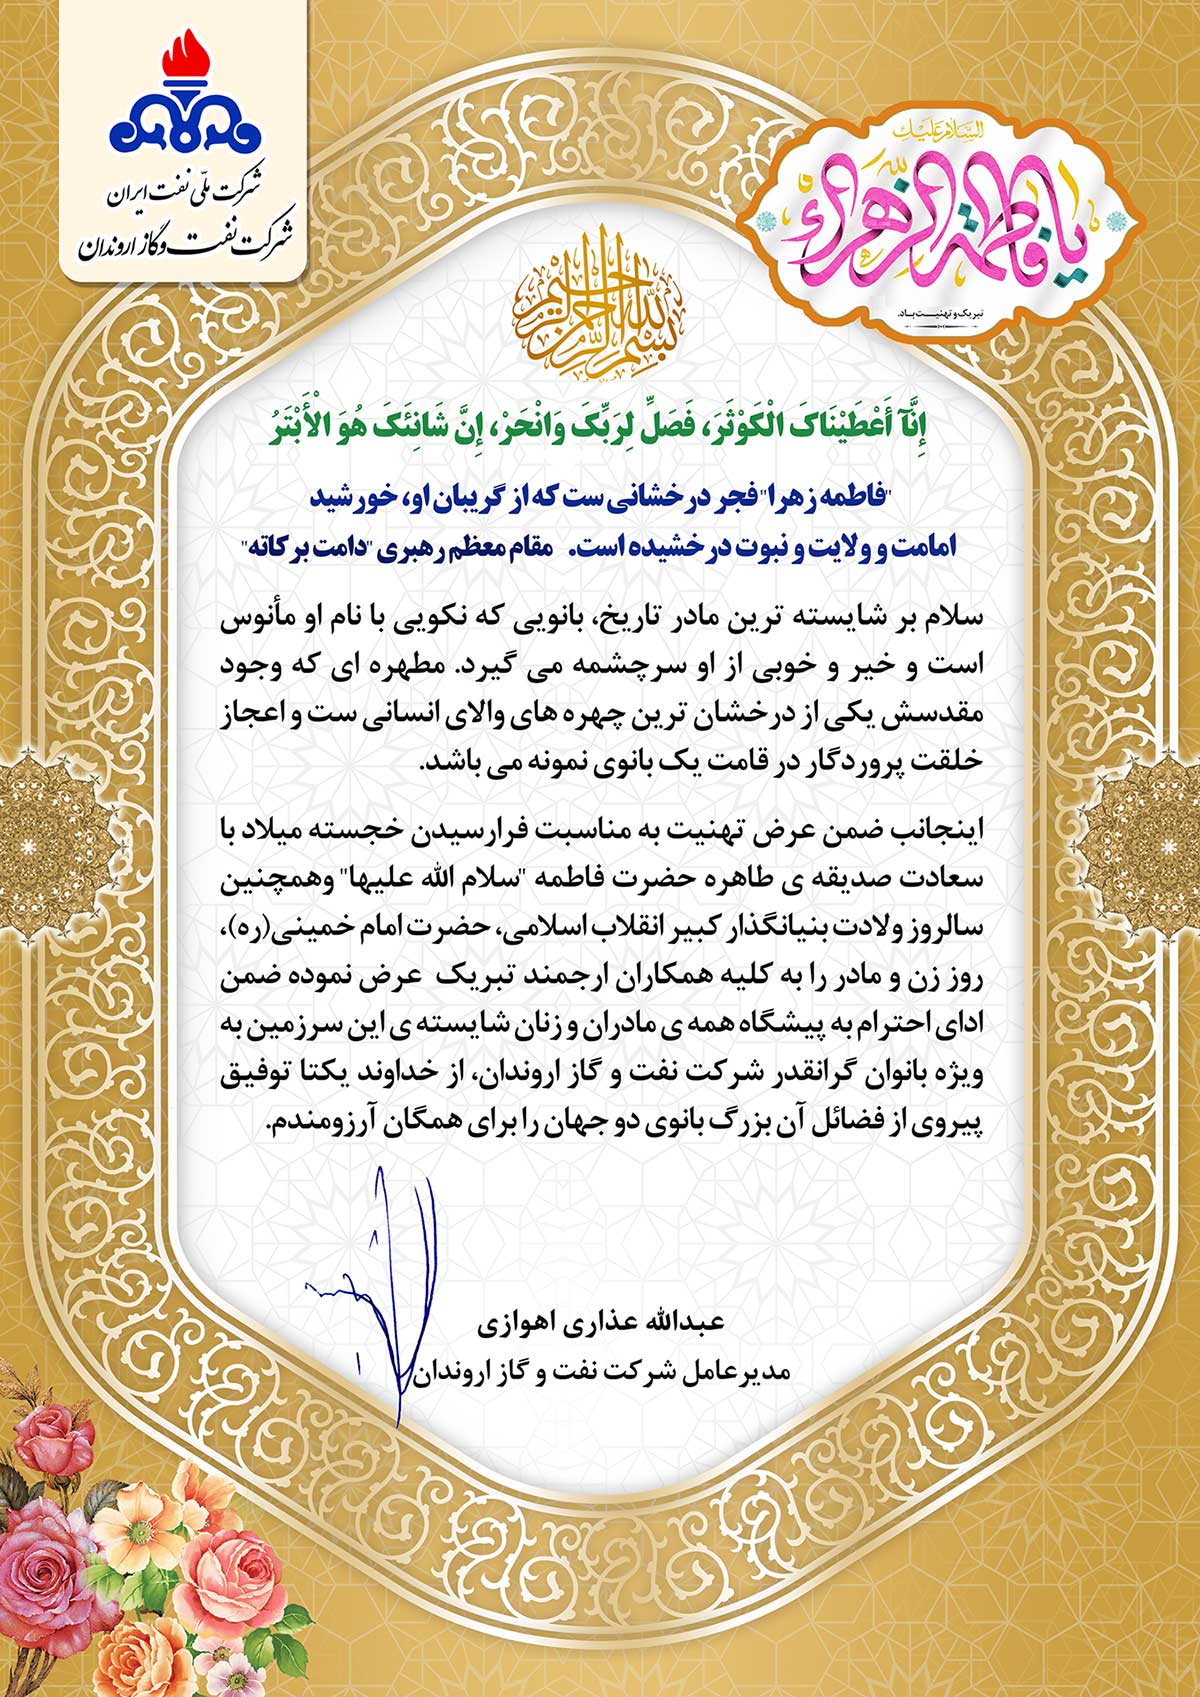 شرکت ملّی نفت ایران
شرکت نفت و گاز اروندان
السَّلامُ عَلَیْكِ
یا فاطمة الزهراء
تبریک و تهنیت باد.
بسم الله الرحمن الرحیم
إِنَّآ أَعْطَیْنَاکَ الْکَوْثَرَ، فَصَلِّ لِرَبِّکَ وَانْحَرْ، إِنَّ شَانِئَکَ هُوَ الْأَبْتَرُ
"فاطمه زهرا" فجر درخشانی ست که از گریبان او، خورشید
امامت و ولایت و نبوت درخشیده است. مقام معظم رهبری "دامت برکاته"
سلام بر شایسته ترین مادر تاریخ، بانویی که نکویی با نام او مأنوس
است و خیر و خوبی از او سرچشمه می گیرد. مطهره ای که وجود
مقدسش یکی از درخشان ترین چهره های والای انسانی ست و اعجاز
خلقت پروردگار در قامت یک بانوی نمونه می باشد.
اینجانب ضمن عرض تهنیت به مناسبت فرارسیدن خجسته میلاد با
سعادت صدیقه ی طاهره حضرت فاطمه "سلام الله علیها" وهمچنین
سالروز ولادت بنیانگذار کبیر انقلاب اسلامی، حضرت امام خمینی(ره)،
روز زن و مادر را به کلیه همکاران ارجمند تبریک عرض نموده ضمن
ادای احترام به پیشگاه همه ی مادران و زنان شایسته ی این سرزمین به
ویژه بانوان گرانقدر شرکت نفت و گاز اروندان، از خداوند یکتا توفیق
پیروی از فضائل آن بزرگ بانوی دو جهان را برای همگان آرزومندم.
عبدالله عذاری اهوازی
مدیرعامل شرکت نفت و گاز اروندان